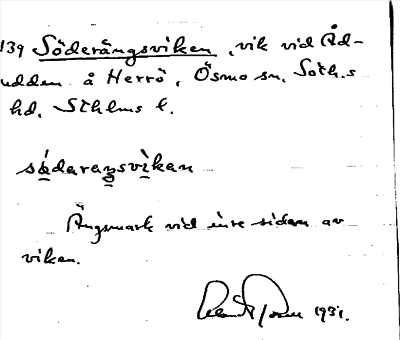 139 Söderängsviken, vik vid Åd-
udden å Herrö, Ösmo sn, Soth.s
hd, Sthlms l.
södaraŋsvikan
Ängsmark vid inre sidan av
viken.
1931.